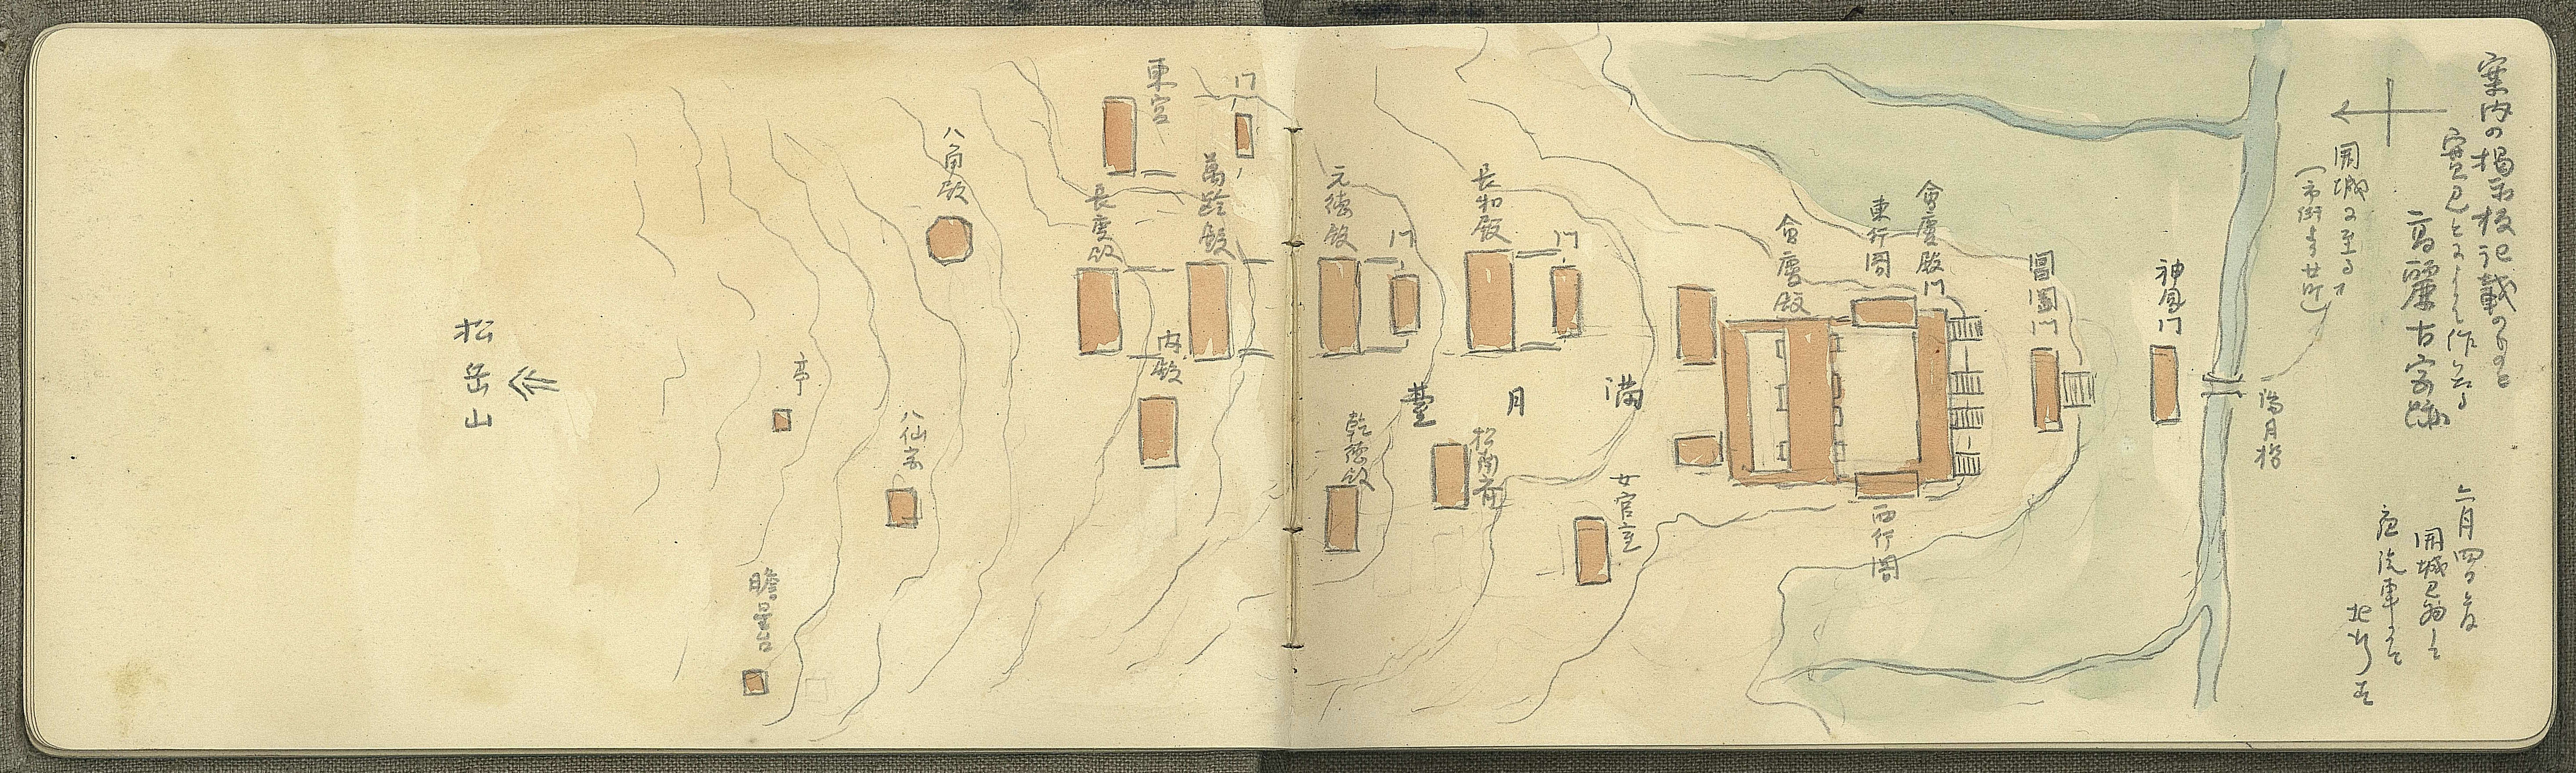 案内の掲示板記載のものと
実見とによりて作れる
高麗古宮跡
開城に至る
(市街まで廿町)
二月四日夜
開城已發して
夜汽車にて
北行す
満月橋
神鳳門
閶闔門
會慶殿門
東行閣
會慶殿
西行閣
満月臺
門
長和殿
女官室
松南府
門
元徳殿
乾徳殿
門
萬齡殿
東宮
内殿
長慶殿
八角殿
八仙宮
亭
瞻星台
松岳山